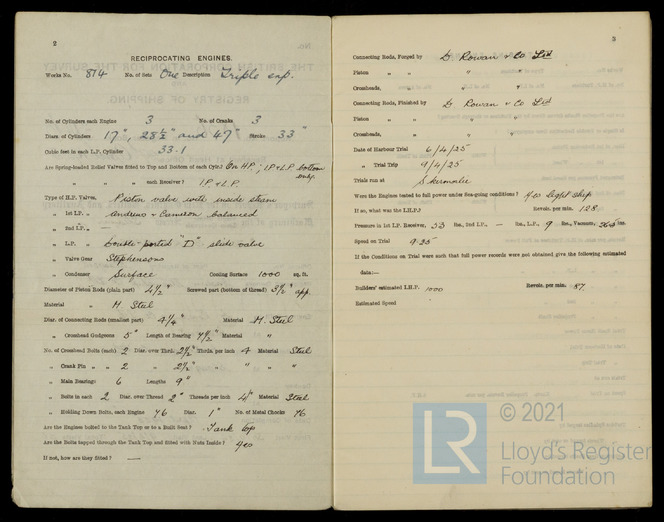 2
RECIPROCATING ENGINES.
Works No. 814 No. of Sets One Description Triple exp.
No. of Cylinders each Engine 3 No. of Cranks 3
Diars. of Cylinders 17", 28½" and 47" Stroke 33"
Cubic feet in each L.P. Cylinder 33.1
Are Spring-loaded Relief Valves fitted to Top and Bottom of each Cylr.? On HP; IP & LP bottom only.
„ „ „ each Receiver? IP & LP.
Type of H.P. Valves, Piston valve with inside steam
„ 1st I.P. „ Andrews & Cameron balanced
„ 2nd I.P. „ —
„ L.P. „ Double-ported "D" slide valve
„ Valve Gear Stephensons
„ Condenser Surface Cooling Surface 1000 sq. ft.
Diameter of Piston Rods (plain part) 4½" Screwed part (bottom of thread) 3½" app.
Material M. Steel
Diar. of Connecting Rods (smallest part) 4¼" Material M. Steel
„ Crosshead Gudgeons 5" Length of Bearing 7½" Material „
No. of Crosshead Bolts (each) 2 Diar. over Thrd. 2½" Thrds. per inch 4 Material Steel
„ Crank Pin „ „ 2 „ 2½" „ „ „ „
„ Main Bearings 6 Lengths 9"
„ Bolts in each 2 Diar. over Thread 2" Threads per inch 4 Material Steel
„ Holding Down Bolts, each Engine 46 Diar. 1" No. of Metal Chocks 46
Are the Engines bolted to the Tank Top or to a Built Seat? Tank top
Are the Bolts tapped through the Tank Top and fitted with Nuts Inside? Yes
If not, how are they fitted? —
3
Connecting Rods, Forged by D. Rowan & Co Ltd
Piston „ „ „
Crossheads, „ „
Connecting Rods, Finished by D. Rowan & Co Ltd
Piston „ „ „
Crossheads, „ „
Date of Harbour Trial 6/4/25
„ Trial Trip 9/4/25
Trials run at Skelmorlie
Were the Engines tested to full power under Sea-going conditions? Yes Light ship
If so, what was the I.H.P.? Revols. per min. 128
Pressure in 1st I.P. Receiver, 53 lbs., 2nd I.P., — lbs., L.P., 9 lbs., Vacuum, ins.
Speed on Trial 9.35
If the Conditions on Trial were such that full power records were not obtained give the following estimated
data:—
Builders' estimated I.H.P. 1000 Revols. per min. 87
Estimated Speed
© 2021
LR
Lloyd's Register
Foundation